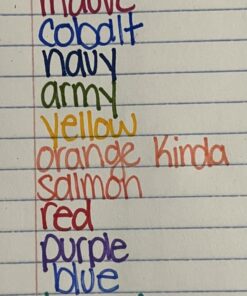 mauve
cobalt
navy
army
yellow
orange kinda
salmon
red
purple
blue